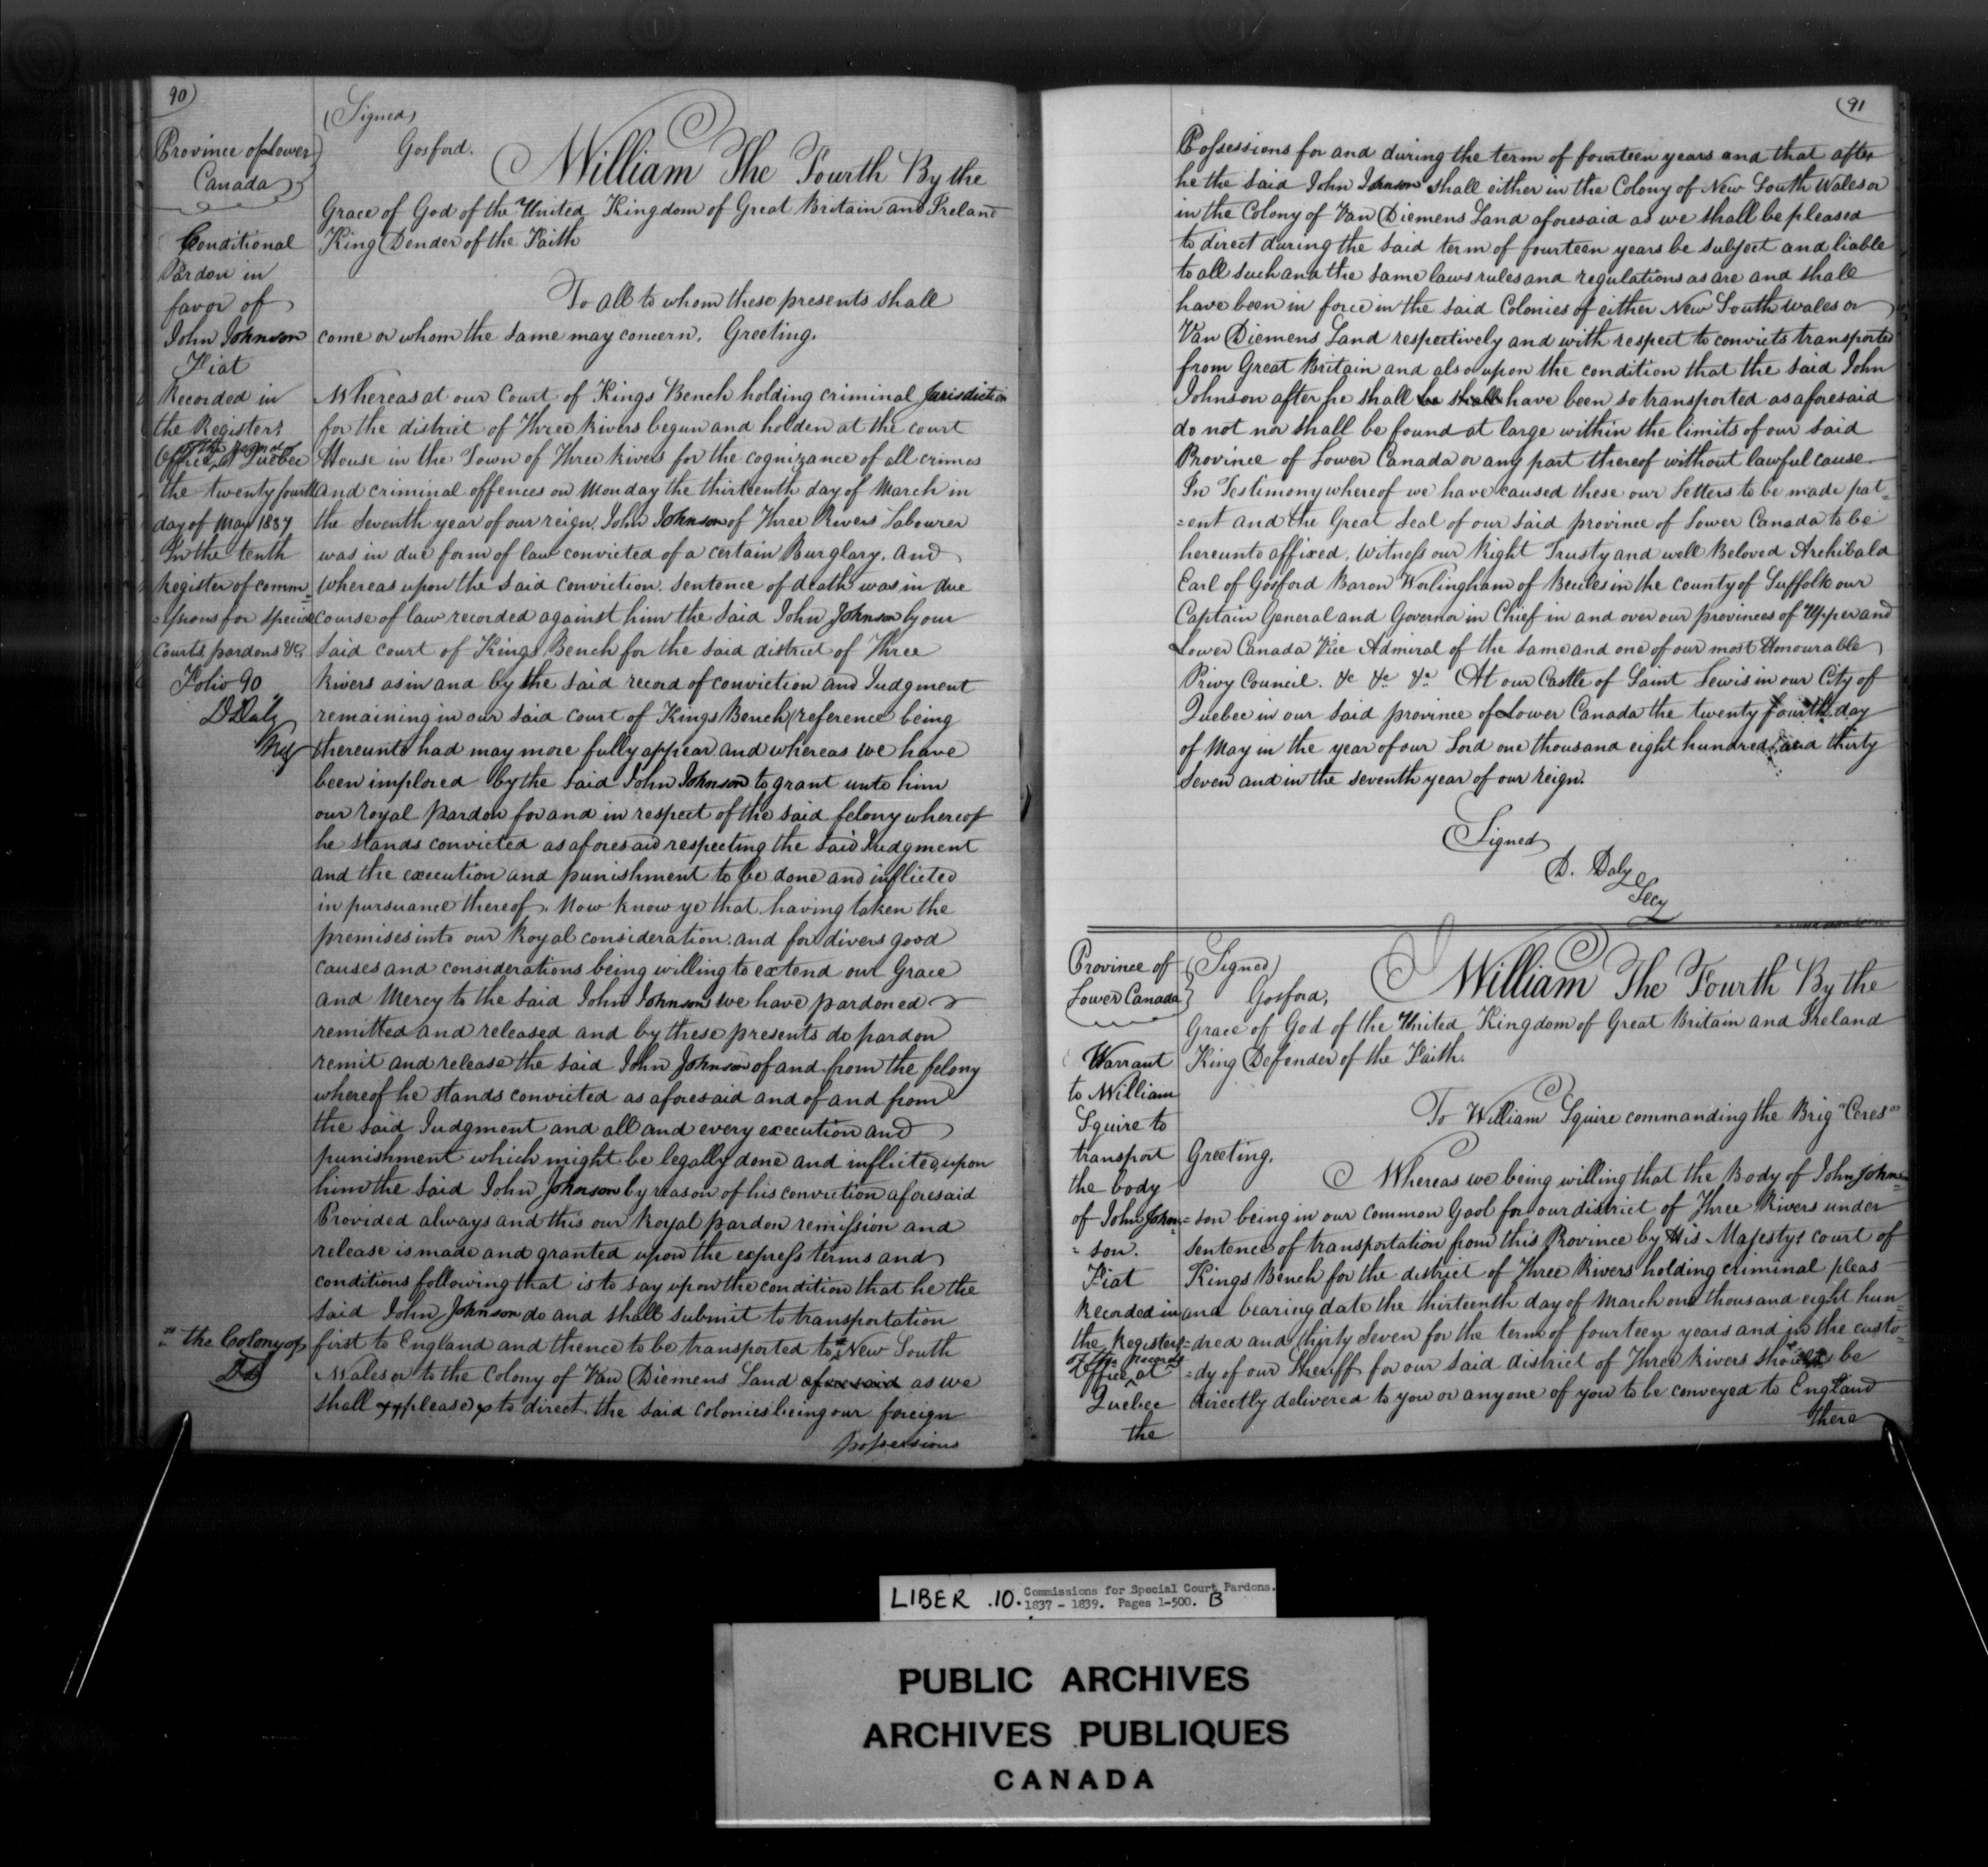 90)
Province of Lower
Canada
Conditional
Pardon in
favor of
John Johnson
Fiat
Recorded in
the Registers
of the Records
Office at Quebec
the twenty fourth
day of May 1837
In the tenth
Register of comm
=issions for special
Courts pardons &c.
Folio 90
D Daly
"the Colony of
DD
(Signed)
Gosford.
William The Fourth By the
Grace of God of the United Kingdom of Great Britain and Ireland
King Dender of the Faith
To all to whom these presents shall
come or whom the same may concern, Greeting.
Whereas at our Court of Kings Bench holding criminal Jurisdiction
for the district of Three Rivers begun and holden at the court
House in the Town of Three Rivers for the cognizance of all crimes
and criminal offences on Monday the thirteenth day of March in
the Seventh year of our reign, John Johnson of Three Rivers Labourer
was in due form of law convicted of a certain Burglary. And
whereas upon the said conviction, sentence of death was in due
course of law recorded against him the said John Johnson by our
said court of Kings Bench for the said district of Three
Rivers as in and by the said record of conviction and Judgment
remaining in our said court of Kings Bench (reference being
thereunto had may more fully appear and whereas we have
been implored by the said John Johnson to grant unto him
our royal pardon for and in respect of the said felony whereof
he stands convicted as aforesaid respecting the said Judgment
and the execution and punishment to be done and inflicted
in pursuance thereof. Now know ye that having taken the
premises into our Royal consideration, and for divers good
causes and considerations being willing to extend our Grace
and Mercy to the said John Johnson we have pardoned
remitted and released and by these presents do pardon
remit and release the said John Johnson of and from the felony
whereof he stands convicted as aforesaid and of and from
the said Judgment and all and every execution and
punishment which might be legally done and inflicted upon
him the said John Johnson by reason of his conviction aforesaid
Provided always and this our Royal pardon remission and
release is made and granted upon the express terms and
conditions following that is to say upon the condition that he the
said John Johnson do and shall submit to transportation
first to England and thence to be transported to " New South
Wales or to the Colony of Van Diemens Land aforesaid as we
shall please to direct, the said colonies being our foreign
possessions
(91
Possessions for and during the term of fourteen years and that after
he the said John Johnson shall either in the Colony of New South Wales or
in the Colony of Van Diemens Land aforesaid as we shall be pleased
to direct during the said term of fourteen years be subject and liable
to all such and the same laws rules and regulations as are and shall
have been in force in the said Colonies of either New South Wales or
Van Diemens Land respectively and with respect to convicts transported
from Great Britain and also upon the condition that the said John
Johnson after he shall be shall have been so transported as aforesaid
do not nor shall be found at large within the limits of our said
Province of Lower Canada or any part thereof without lawful cause
In Testimony whereof we have caused these our Letters to be made pat=
=ent and the Great Seal of our said province of Lower Canada to be
hereunto affixed, Witness our Right Trusty and well Beloved Archibald
Earl of Gosford Baron Worlingham of Beccles in the county of Suffolk our
Captain General and Governor in Chief in and over our provinces of Upper and
Lower Canada Vice Admiral of the same and one of our most Honourable
Privy Council. &c &c &c At our Castle of Saint Lewis in our City of
Quebec in our said province of Lower Canada the twenty fourth day
of May in the year of our Lord one thousand eight hundred and thirty
Seven and in the seventh year of our reign.
Signed
D. Daly
Secy
Province of
Lower Canada
Warrant
to William
Squire to
transport
the body
of John John=
=son.
Fiat
Recorded in
the Registers
of the Records
Office at
Quebec
the
(Signed)
Gosford,
William The Fourth By the
Grace of God of the United Kingdom of Great Britain and Ireland
King Defender of the Faith.
To William Squire commanding the Brig "Ceres"
Greeting.
Whereas we being willing that the Body of John John=
=son being in our Common Gaol for our district of Three Rivers under
sentence of transportation from this Province by His Majestys court of
Kings Bench for the district of Three Rivers holding criminal pleas
and bearing date the thirteenth day of March one thousand eight hun=
=dred and thirty Seven for the term of fourteen years and in the custo=
=dy of our Sheriff for our said district of Three Rivers should be
directly delivered to you or any one of you to be conveyed to England
there
LIBER .10. Commissions for Special Court Pardons.
1837 - 1839. Pages 1-500. B
PUBLIC ARCHIVES
ARCHIVES PUBLIQUES
CANADA